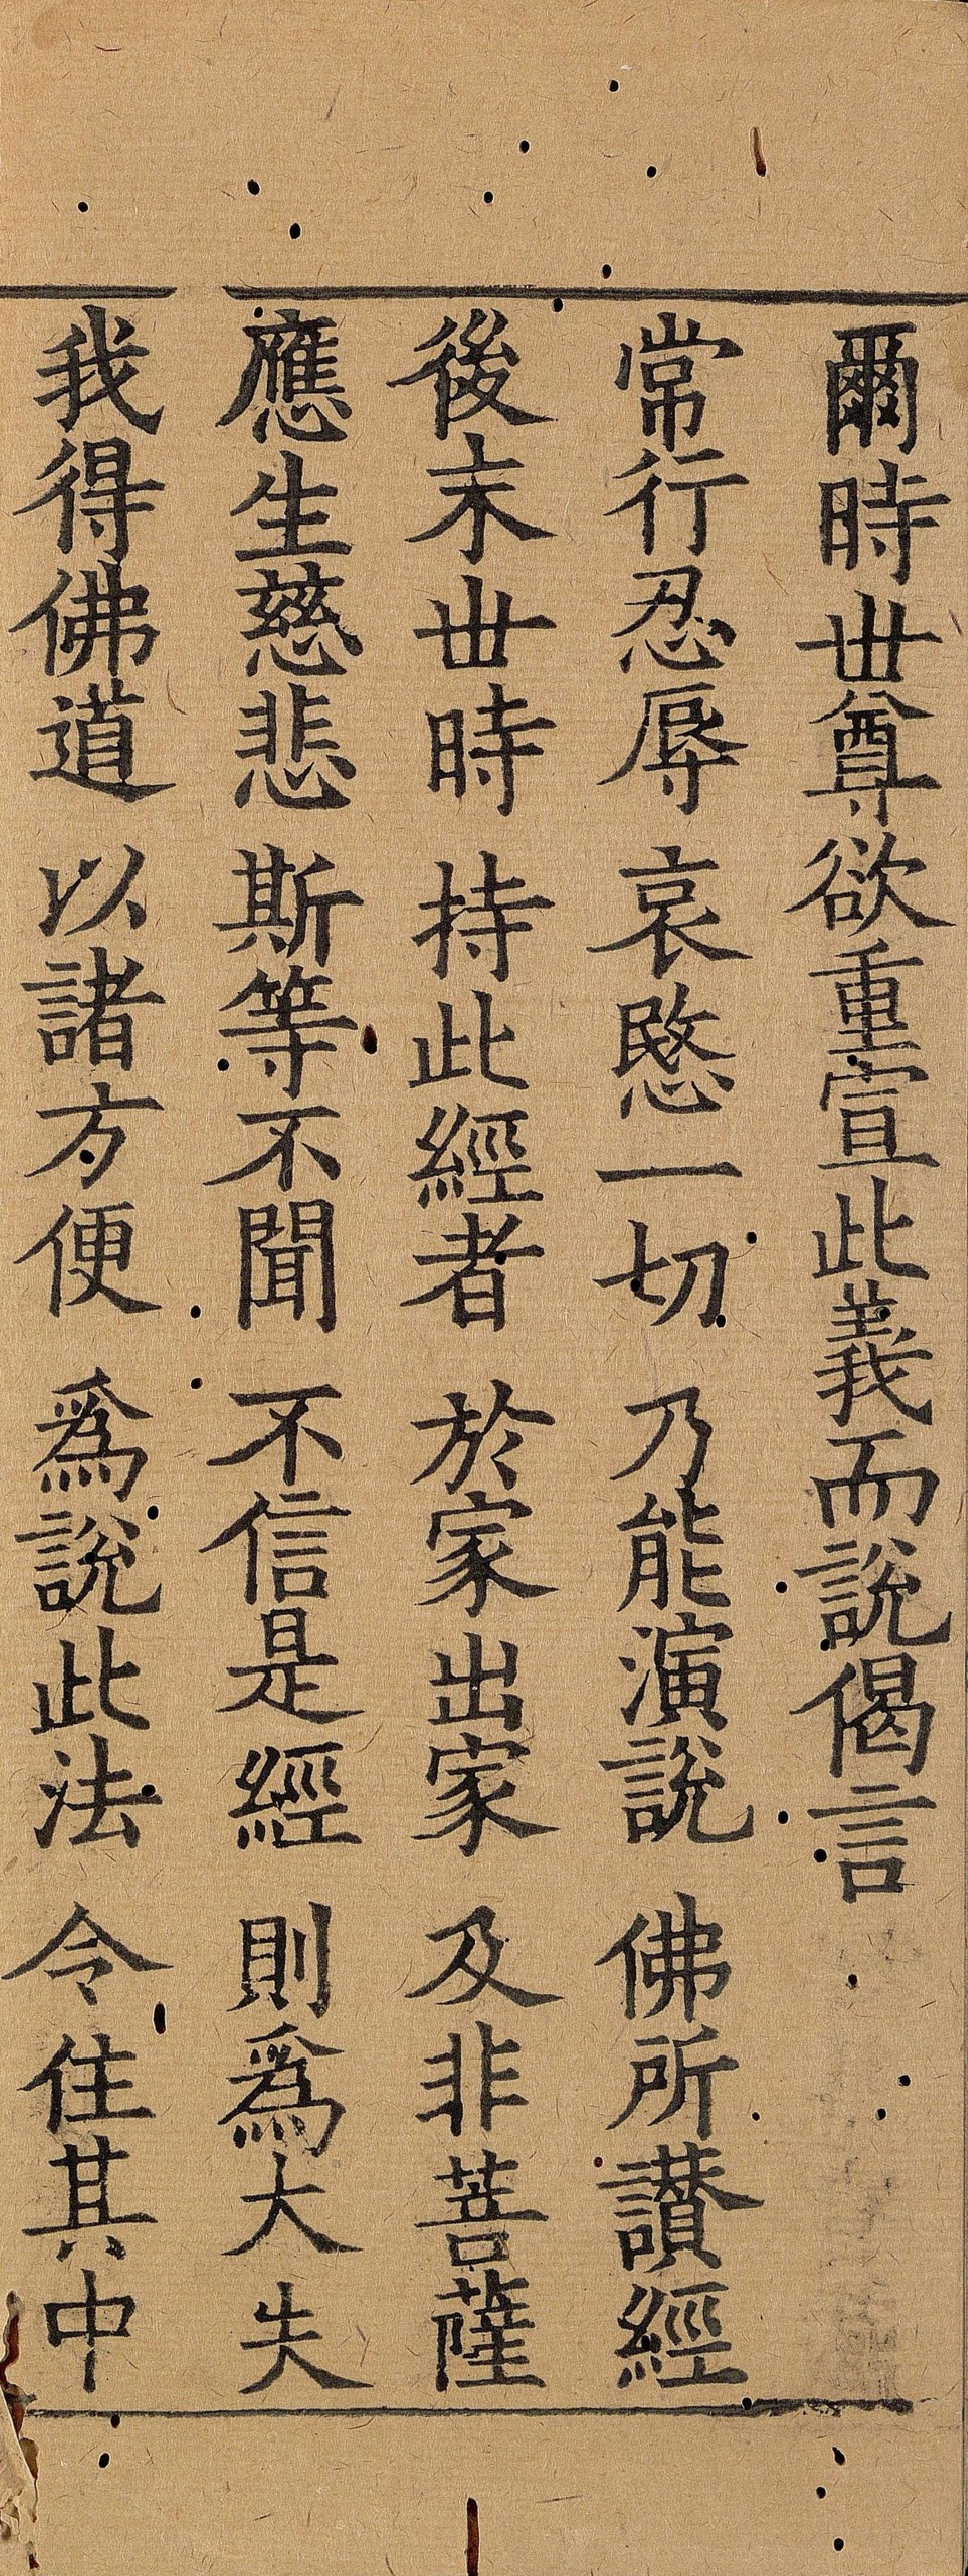 爾時丗尊欲重宣此義而說偈言
常行忍辱　哀愍一切　乃能演說　佛所讃經
後末丗時　持此經者　於家出家　及非菩薩
應生慈悲　斯等不聞　不信是經　則爲大失
我得佛道　以諸方便　爲說此法　令住其中